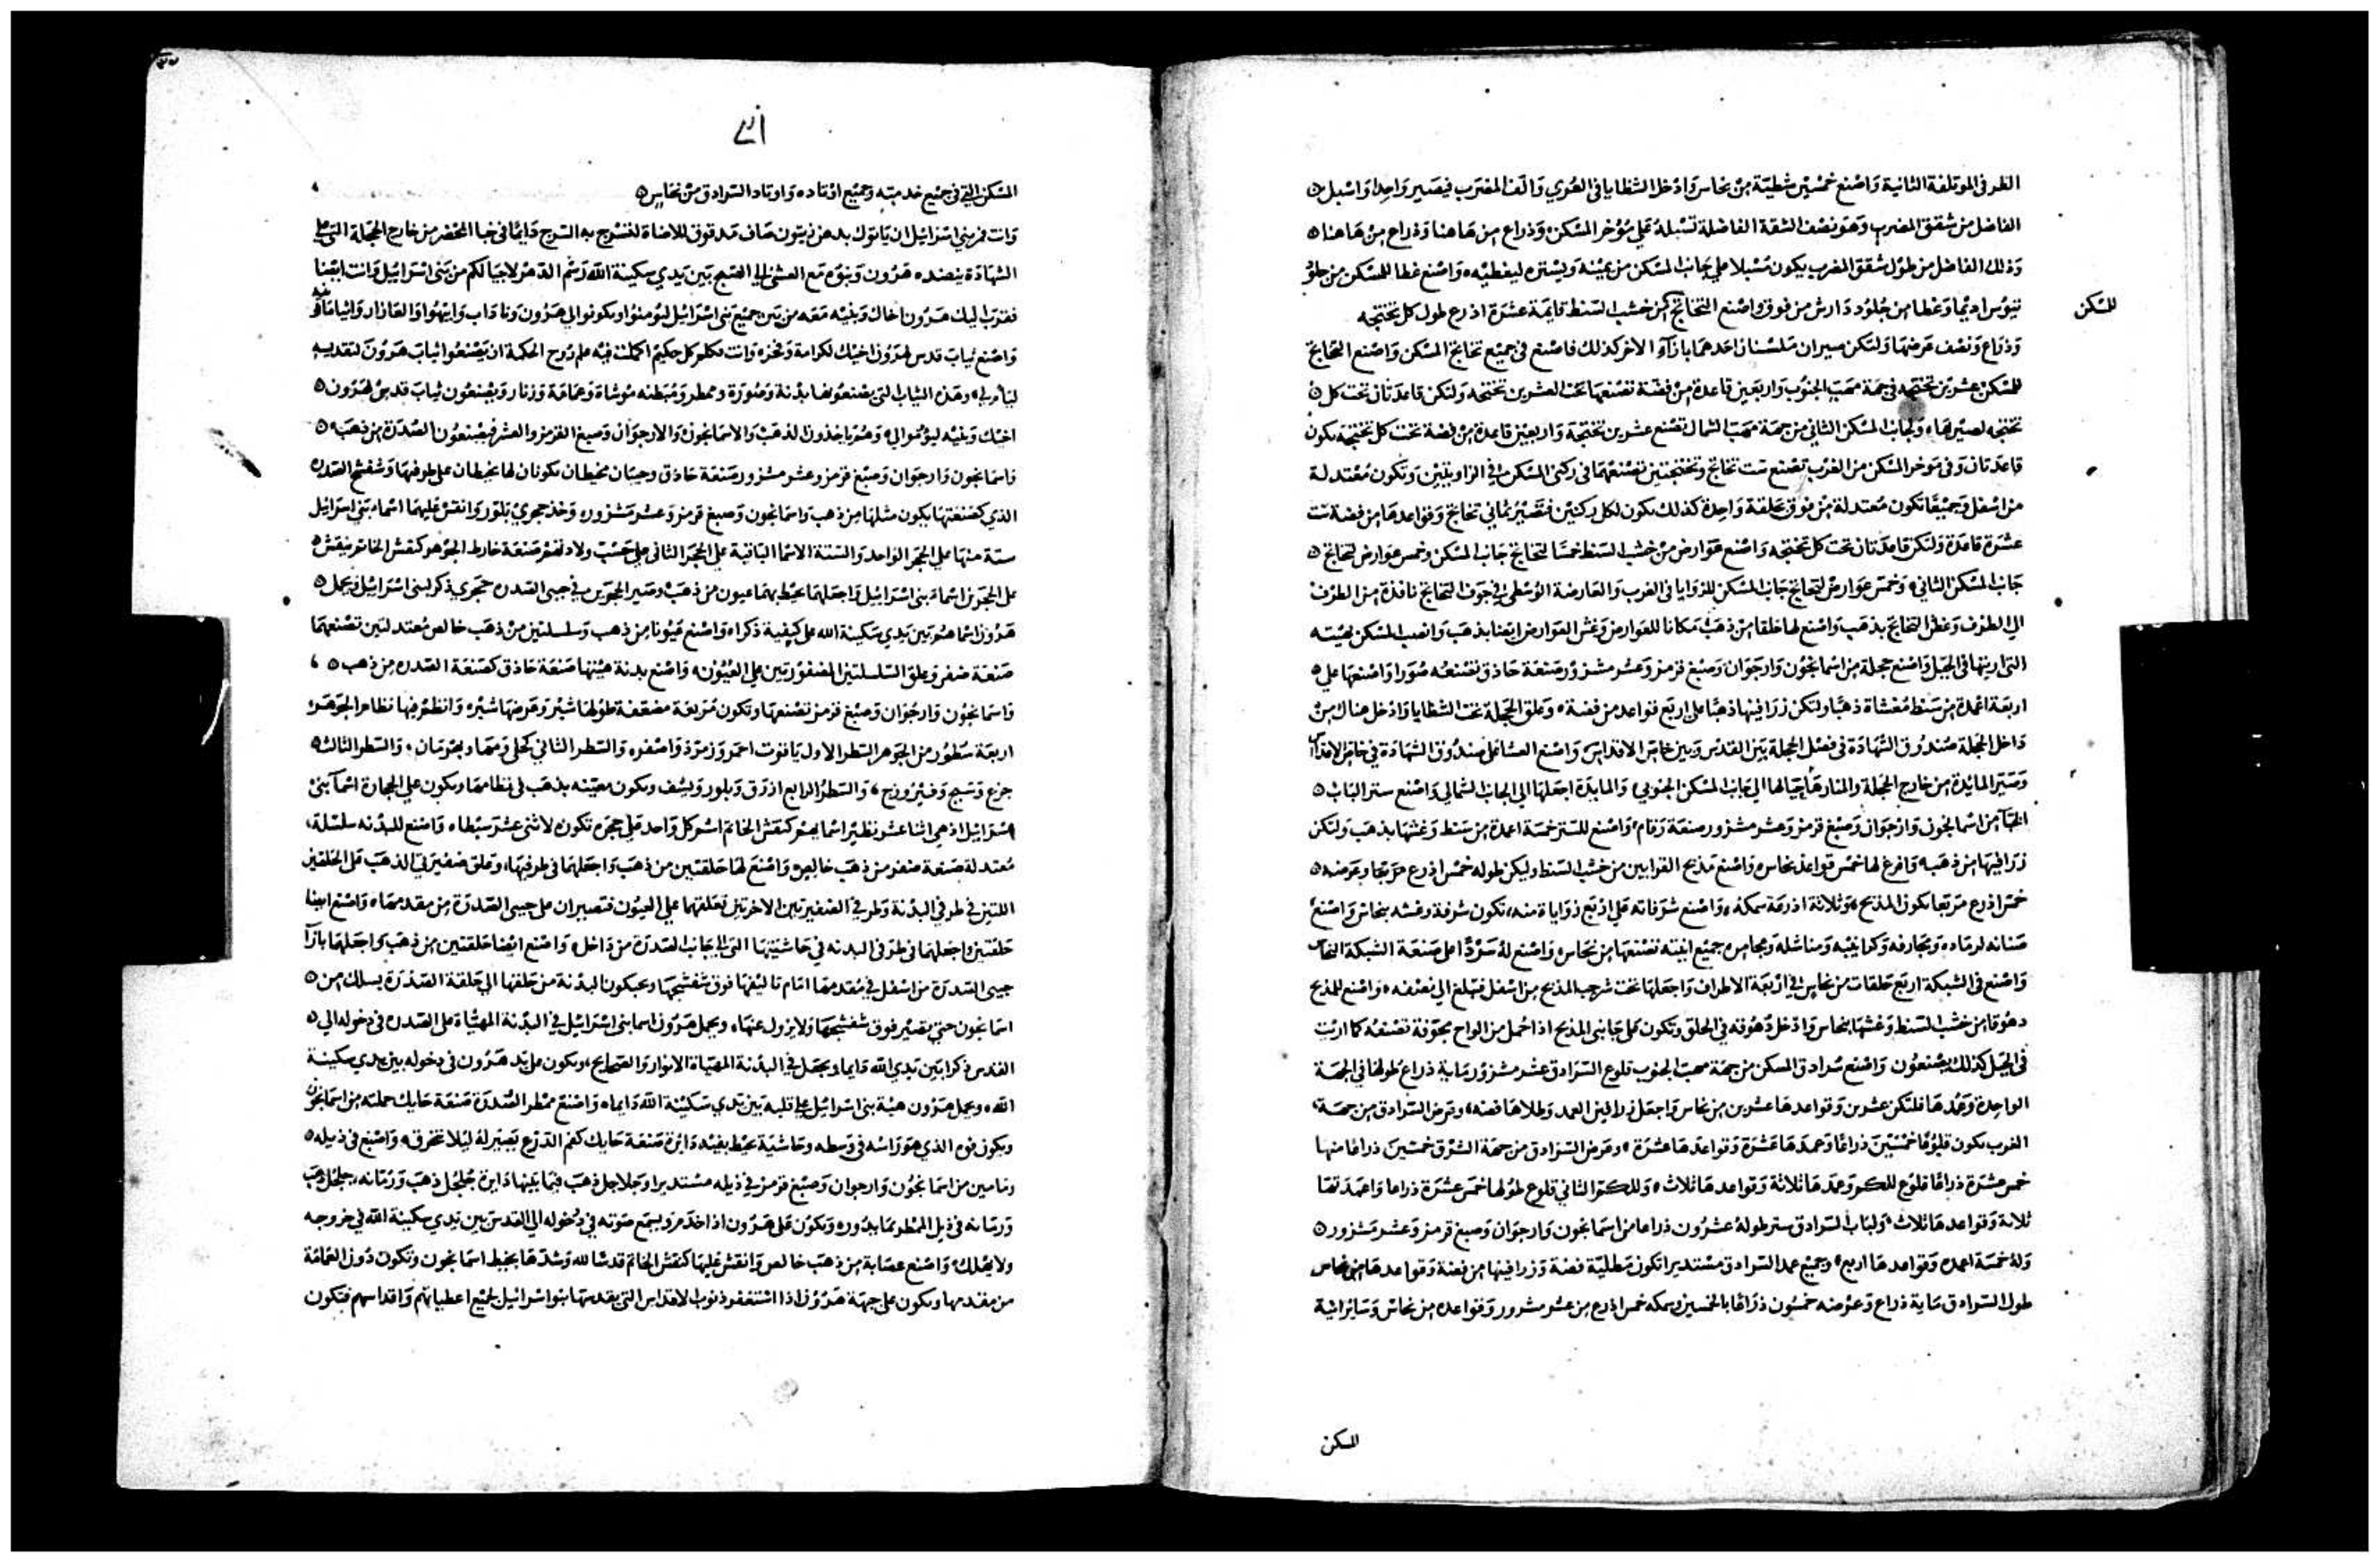 الطرف الموتلفة الثانية واصنع خمسين شظية من نحاس وادخل الشظايا في العري والف المضرب فيصير واحدا واسبل
الفاضل من شقق المضرب وهو نصف الشقة الفاضلة تسبله على مؤخر المسكن وذراع من هاهنا وذراع من هاهنا
وذلك الفاضل من طول شقق المضرب يكون مسبلا على جانب المسكن من يمينه ويسترته ليغطيه واصنع غطا للمسكن من جلود
تيوس اديما وغطا من جلود دارش من فوق واصنع التخاتج للمسكن من خشب السنط قايمة عشرة اذرع طول كل تختجه
وذراع ونصف عرضها ولتكن صيران ملسنان احدهما بازاء الاخر كذلك فاصنع في جميع تخاتج المسكن واصنع التخاتج
للمسكن عشرين تختجه في جهة مهب الجنوب واربعين قاعدة من فضة تصنعها تحت العشرين تختجه ولتكن قاعدتان تحت كل
تختجه لصيرها ولجانب المسكن الثاني من جهة مهب الشمال تصنع عشرين تختجة واربعين قاعدة من فضة تحت كل تختجه يكون
قاعدتان وفي موخر المسكن من الغرب تصنع ست تخاتج وتختجتين تصنعهما في ركني المسكن في الزاويتين وتكون معتدلة
من اسفل وجميعا تكون معتدلة من فوق بحلقة واحدة كذلك يكون لكل ركنين فتصير ثماني تخاتج وقواعدها من فضة ست
عشرة قاعدة ولتكن قاعدتان تحت كل تختجه واصنع عوارض من خشب السنط خمسا لتخاتج جانب المسكن وخمس عوارض لتخاتج
جانب المسكن الثاني وخمس عوارض لتخاتج جانب المسكن للزوايا في الغرب والعارضة الوسطى في جوف التخاتج نافذة من الطرف
الي الطرف وغطي التخاتج بذهب واصنع لها حلقا من ذهب مكانا للعوارض وغش العوارض ايضا بذهب وانصب المسكن بهيئته
التي اريتها في الجبل واصنع حجلة من اسمانجون وارجوان وصبغ قرمز وعشر مشزور صنعة حاذق تصنعه صورا واصنعها على
اربعة اعمدة من سنط مغشاة ذهبا ولتكن زرافينها ذهبا على اربع قواعد من فضة وعلق الحجلة تحت الشظايا وادخل هناك من
داخل الحجلة صندوق الشهادة في فصل الحجلة بين القدس وبين خاص الاقداس واصنع الغشا على صندوق الشهادة في خاص الاقداس
وصير المائدة من خارج الحجلة والمنارة حيالها الي جانب المسكن الجنوبي والمايدة اجعلها الي الجانب الشمالي واصنع ستر الباب
الخبا من اسمانجون وارجوان وصبغ قرمز وعشر مشزور صنعة رقام واصنع للستر خمسة اعمدة من سنط وغشها بذهب ولتكن
زرافينها من ذهب وافرغ لها خمس قواعد نحاس واصنع مذبح القرابين من خشب السنط وليكن طوله خمس اذرع مربعا وعرضه
خمس اذرع مربعا يكون المذبح وثلاثة اذرعة سمكه واصنع شرفاته على اربع زواياه منه تكون شرفه وغشه بنحاس واصنع
صنانه لرماده ومجارفه وكرانيبه ومناشله ومجامره جميع ابنيته تصنعها من نحاس واصنع له سردا على صنعة الشبكة النحاس
واصنع في الشبكة اربع حلقات من نحاس في اربعة الاطراف واجعلها تحت شرجب المذبح من اسفل فتبلغ الي نصفه واصنع للمذبح
دهوقا من خشب السنط وغشها بنحاس وادخل دهوقه في الحلق وتكون على جانبي المذبح اذا احمل من الواح مجوفة تصنعه كما اريت
في الجبل كذلك يصنعون واصنع سرادق المسكن من جهة مهب الجنوب قلوع السرادق عشر مشزور ماية ذراع طولها في الجهة
الواحدة وعمدها فلتكن عشرين وقواعدها عشرين من نحاس واجعل زرافين العمد وطلاها فضه وعرض السرادق من جهة
الغرب يكون قلوعا خمسين ذراعا وعمدها عشرة وقواعدها عشرة وعرض السرادق من جهة الشرق خمسين ذراعا منها
خمس عشرة ذراعا قلوع للكم وعمدها ثلاثة وقواعدها ثلاث وللكم الثاني قلوع طولها خمس عشرة ذراعا واعمدتها
ثلاثة وقواعدها ثلاث ولباب السرادق ستر طوله عشرون ذراعا من اسمانجون وارجوان وصبغ قرمز وعشر مشزور
وله خمسة اعمده وقواعدها اربع وجميع عمد السرادق مستديرا تكون مطلية فضة وزرافينها من فضة وقواعدها من نحاس
طول السرادق ماية ذراع وعرضه خمسون ذراعا بالخمسين وسمكه خمس اذرع من عشر مشزور وقواعده من نحاس وسائر انية
للمسكن
المسكن
المسكن التي في جميع خدمته وجميع اوتاده واوتاد السرادق من نحاس
وانت فمر بني اسرائيل ان ياتوك بدهن زيتون صاف مدقوق للاضاة لتسرج به السرج دايما في خبا المحضر من خارج الحجلة التي على
الشهادة ينضده هرون وبنوه مع العشي الي الصبح بين يدي سكينة الله رسم الدهر لاجيالكم من بني اسرائيل وانت ايضا
فقرب اليك هرون اخاك وبنيه معه من بين جميع بني اسرائيل ليؤمنوا ويكونوا لي هرون وناداب وابيهوا والعازار وايثامار
واصنع ثياب قدس لهرون اخيك لكرامة وفخره وانت تكلم كل حكيم اكملت فيه علم روح الحكمة ان يصنعوا ثياب هرون لتقديسه
ليأم لي وهذه الثياب التي يصنعونها بدنة وصدرة وممطر ومبطنه موشاة وعمامة وزنار ويصنعون ثياب قدس لهرون
اخيك وبنيه ليؤموا لي وهم ياخذون الذهب والاسمانجون والارجوان وصبغ القرمز والعشر فيصنعون الصدرة من ذهب
واسمانجون وارجوان وصبغ قرمز وعشر مشزور صنعة حاذق وجيبان مخيطان يكونان لها مخيطان على طرفيها وشفشج الصدرة
الذي كصنعتها يكون مثلها من ذهب واسمانجون وصبغ قرمز وعشر مشزور وخذ حجري بلور وانقش عليهما اسماء بني اسرائيل
ستة منها على الحجر الواحد والستة الاسما الباقية على الحجر الثاني على حسب ولادتهم صنعة خارط الجوهر كنقش الخاتم ينقش
على الحجرين اسماء بني اسرائيل واجعلهما تحيط بهما عيون من ذهب وصير الحجرين في جيبي الصدرة حجري ذكر لبني اسرائيل ويحمل
هرون اسماهم بين يدي سكينة الله على كتفيه ذكرا واصنع عيونا من ذهب وسلسلتين من ذهب خالص معتدلتين تصنعهما
صنعة ضفر وعلق السلسلتين المضفورتين على العيون واصنع بدنة هيئتها صنعة حاذق كصنعة الصدرة من ذهب
واسمانجون وارجوان وصبغ قرمز تصنعها وتكون مربعة مضعفة طولها شبر وعرضها شبر وانظم فيها نظام الجوهر
اربعة سطور من الجوهر السطر الاول ياقوت احمر وزمرد واصفر والسطر الثاني كحلي ومها وبهرمان والسطر الثالث
جزع وسبج وفيروزج والسطر الرابع ازرق وبلور ويشف ويكون معينه بذهب في نظامها ويكون على الحجارة اسما بني
اسرائيل اذ هي اثنا عشر نظير اسمايهم كنقش الخاتم اسم كل واحد على حجره تكون لاثني عشر سبطا واصنع للبدنه سلسلة
معتدلة صنعة ضفر من ذهب خالص واصنع لها حلقتين من ذهب واجعلهما في طرفيها وعلق ضفيرتي الذهب على الحلقتين
اللتين في طرفي البدنة وطرفي الضفيرتين الاخرتين تعلقهما على العيون فتصيران على جيبي الصدرة من مقدمها واصنع ايضا
حلقتين واجعلهما في طرفي البدنه في حاشيتها التي الي جانب الصدرة من داخل واصنع ايضا حلقتين من ذهب واجعلهما بازا
جيبي الصدرة من اسفل في مقدمها امام تاليفها فوق شفشجها ويحبكون البدنة من حلقها الي حلقة الصدرة بسلك من
اسمانجون حتى تصير فوق شفشجها ولا يزول عنها ويحمل هرون اسما بني اسرائيل في البدنة المهياة على الصدره في دخوله الي
القدس ذكرا بين يدي الله دايما ويجعل في البدنة المهياة الانوار والصحايح ويكون على يد هرون في دخوله بين يدي سكينة
الله ويحمل هرون هيئة بني اسرائيل على قلبه بين يدي سكينة الله دايما واصنع ممطر الصدرة صنعة حايك جملته من اسمانجون
ويكون فوه الذي هو راسه في وسطه وحاشية تحيط بفيه دايرة صنعة حايك كفم الدرع يصير له ليلا تخرق واصنع في ذيله
رمامين من اسمانجون وارجوان وصبغ قرمز في ذيله مستديرا وجلاجل ذهب فيما بينها دايرة جلجل ذهب ورمانه جلجل ذهب
ورمانه في ذيل الممطر بما يدوره ويكون على هرون اذا خدم ويسمع صوته في دخوله الي القدس بين يدي سكينة الله في خروجه
ولا يهلك واصنع عصابة من ذهب خالص وانقش عليها كنقش الخاتم قدسا لله وشدها بخيط اسمانجون وتكون دون العمامة
من مقدمها ويكون على جبهة هرون اذا استغفر ذنوب الاقداس التي يقدسها بنو اسرائيل لجميع اعطياتهم واقداسهم فتكون